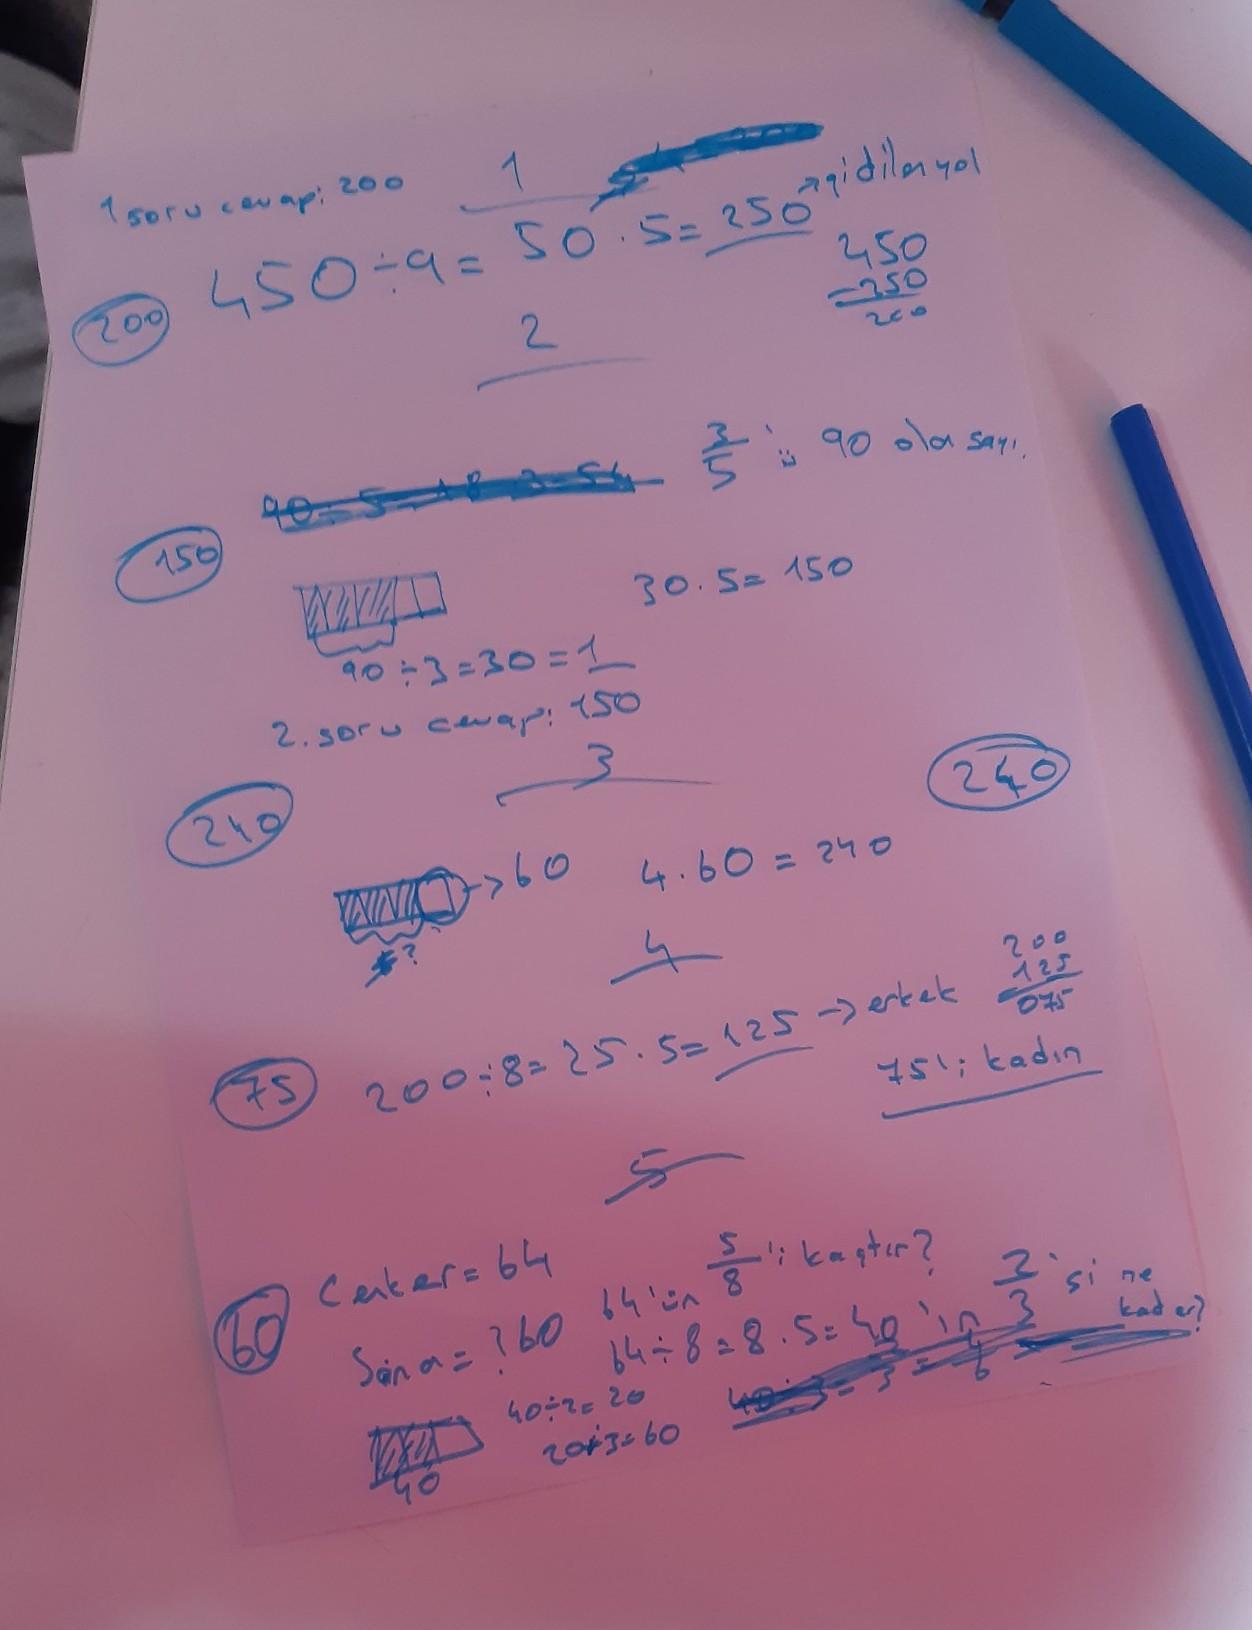 1 soru cevap: 200
1
450÷9= 50.5= 250 → gidilen yol
450
-250
200
200
2
3/5 'ü 90 olan sayı.
150
30.5= 150
90÷3=30=1
2. soru cevap: 150
3
240
240
→60 4.60=240
?
4
75
200÷8=25.5=125 → erkek
200
125
075
75'i kadın
5
60
Canker=64
64'ün 5/8'i kaçtır?
Sana=?60
64÷8=8.5=40'ın 2/3'si ne kadar?
40÷2=20
20.3=60
40